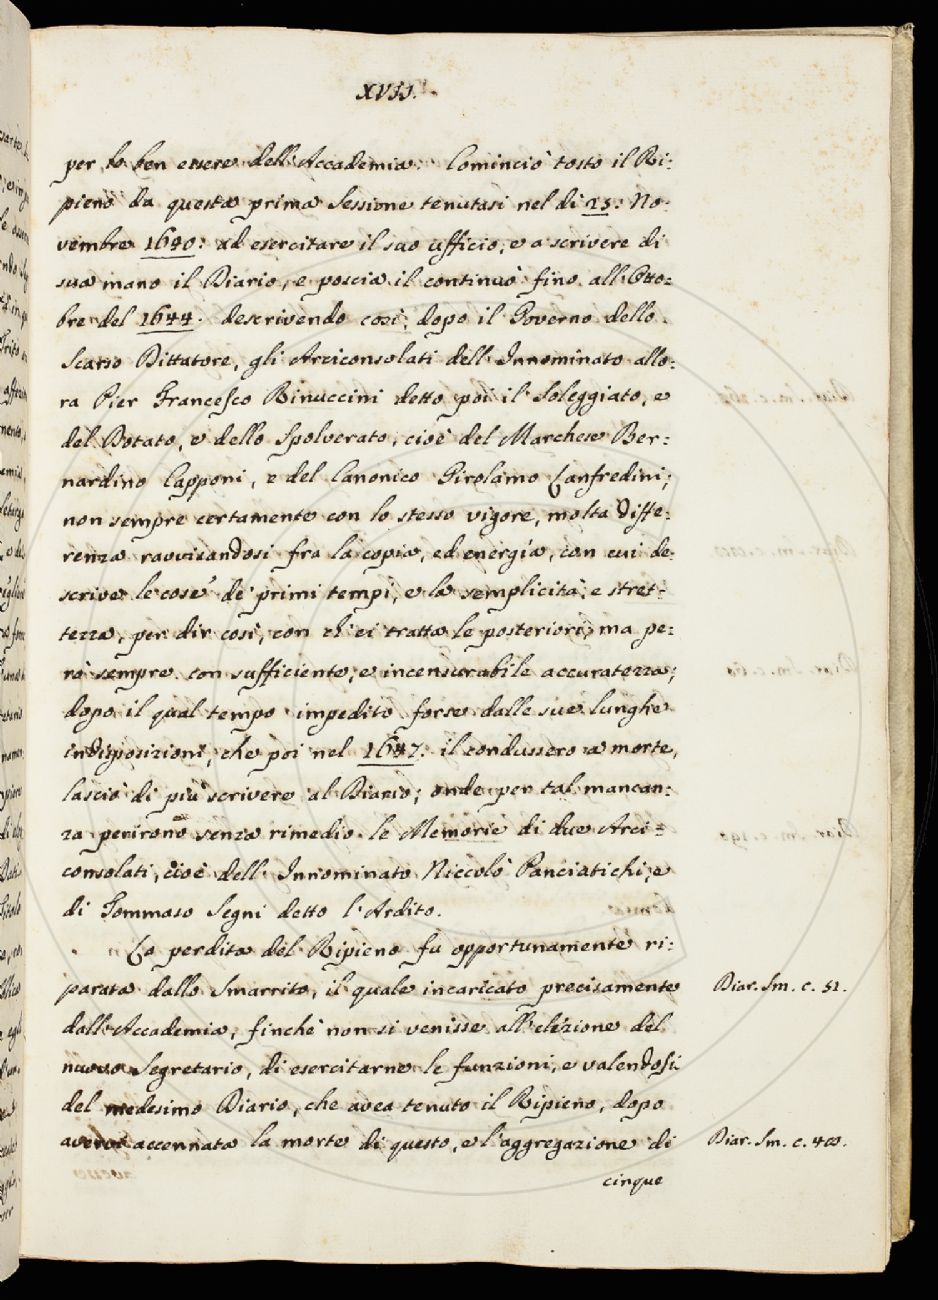 XVII.
per lo ben essere dell'Accademia. Cominciò tosto il Ri:
pieno da questa prima Sessione tenutasi nel dì 25: No:
vembre 1640: ad esercitare il suo uffizio, e a scrivere di
sua mano il Diario, e poscia il continuò fino all'Otto:
bre del 1644. descrivendo così, dopo il Governo dello
Scarso Dittatore, gli Arciconsolati dell'Innominato allo:
ra Pier Francesco Rinuccini detto poi il Soleggiato, e
del Dotato, e dello Spolverato, cioè del Marchese Ber:
nardino Capponi, e del Canonico Girolamo Lanfredini;
non sempre certamente con lo stesso vigore, molta diffe:
renza ravvisandosi fra la copia, ed energia, con cui de:
scrive le cose de' primi tempi, e la semplicità, e stret:
tezza, per dir così, con chi ei tratta le posteriori, ma pe:
rò sempre con sufficiente, e incensurabile accuratezza;
dopo il qual tempo impedito forse dalle sue lunghe
indisposizioni, che poi nel 1647: il condussero a morte,
lasciò di più scrivere al Diario; onde per tal mancan:
za perirono senza rimedio le Memorie di due Arci:
consolati, cioè dell'Innominato Niccolò Panciatichi, e
di Tommaso Segni detto l'Ardito.
La perdita del Ripieno fu opportunamente ri:
parata dallo Smarrito, il quale incaricato precisamente
Diar. Sm. c. 51.
dall'Accademia, finchè non si venisse all'elezione del
nuovo Segretario, di esercitarne le funzioni, e valendosi
del medesimo Diario, che avea tenuto il Ripieno, dopo
avere accennata la morte di questo, e l'aggregazione di
Diar. Sm. c. 40.
cinque